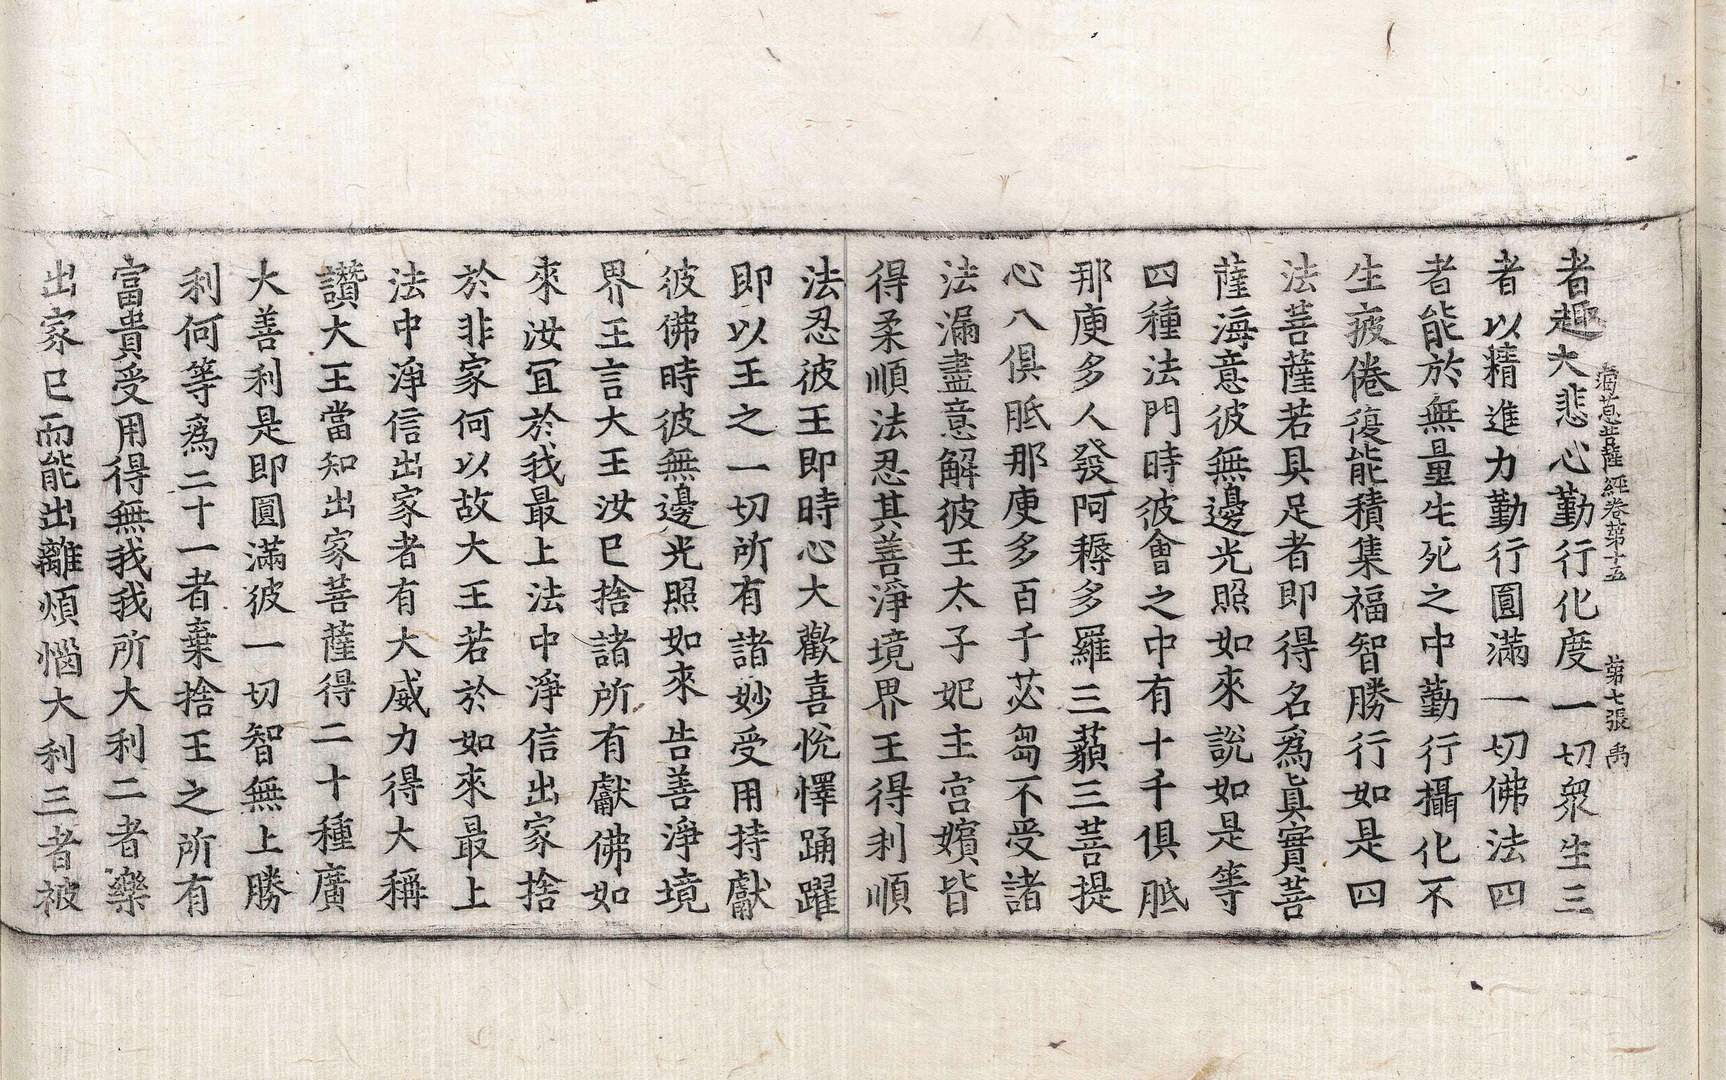 海意菩薩經卷第十五 第七張 禹
者趣大悲心勤行化度一切衆生三
者以精進力勤行圓滿一切佛法四
者能於無量生死之中勤行攝化不
生疲倦復能積集福智勝行如是四
法菩薩若具足者即得名爲眞實菩
薩海意彼無邊光照如來說如是等
四種法門時彼會之中有十千俱胝
那庾多人發阿耨多羅三藐三菩提
心八俱胝那庾多百千苾芻不受諸
法漏盡意解彼王太子妃主宮嬪皆
得柔順法忍其善淨境界王得利順
法忍彼王即時心大歡喜悅懌踊躍
即以王之一切所有諸妙受用持獻
彼佛時彼無邊光照如來告善淨境
界王言大王汝已捨諸所有獻佛如
來汝冝於我最上法中淨信出家捨
於非家何以故大王若於如來最上
法中淨信出家者有大威力得大稱
讚大王當知出家菩薩得二十種廣
大善利是即圓滿彼一切智無上勝
利何等爲二十一者棄捨王之所有
富貴受用得無我我所大利二者樂
出家已而能出離煩惱大利三者被